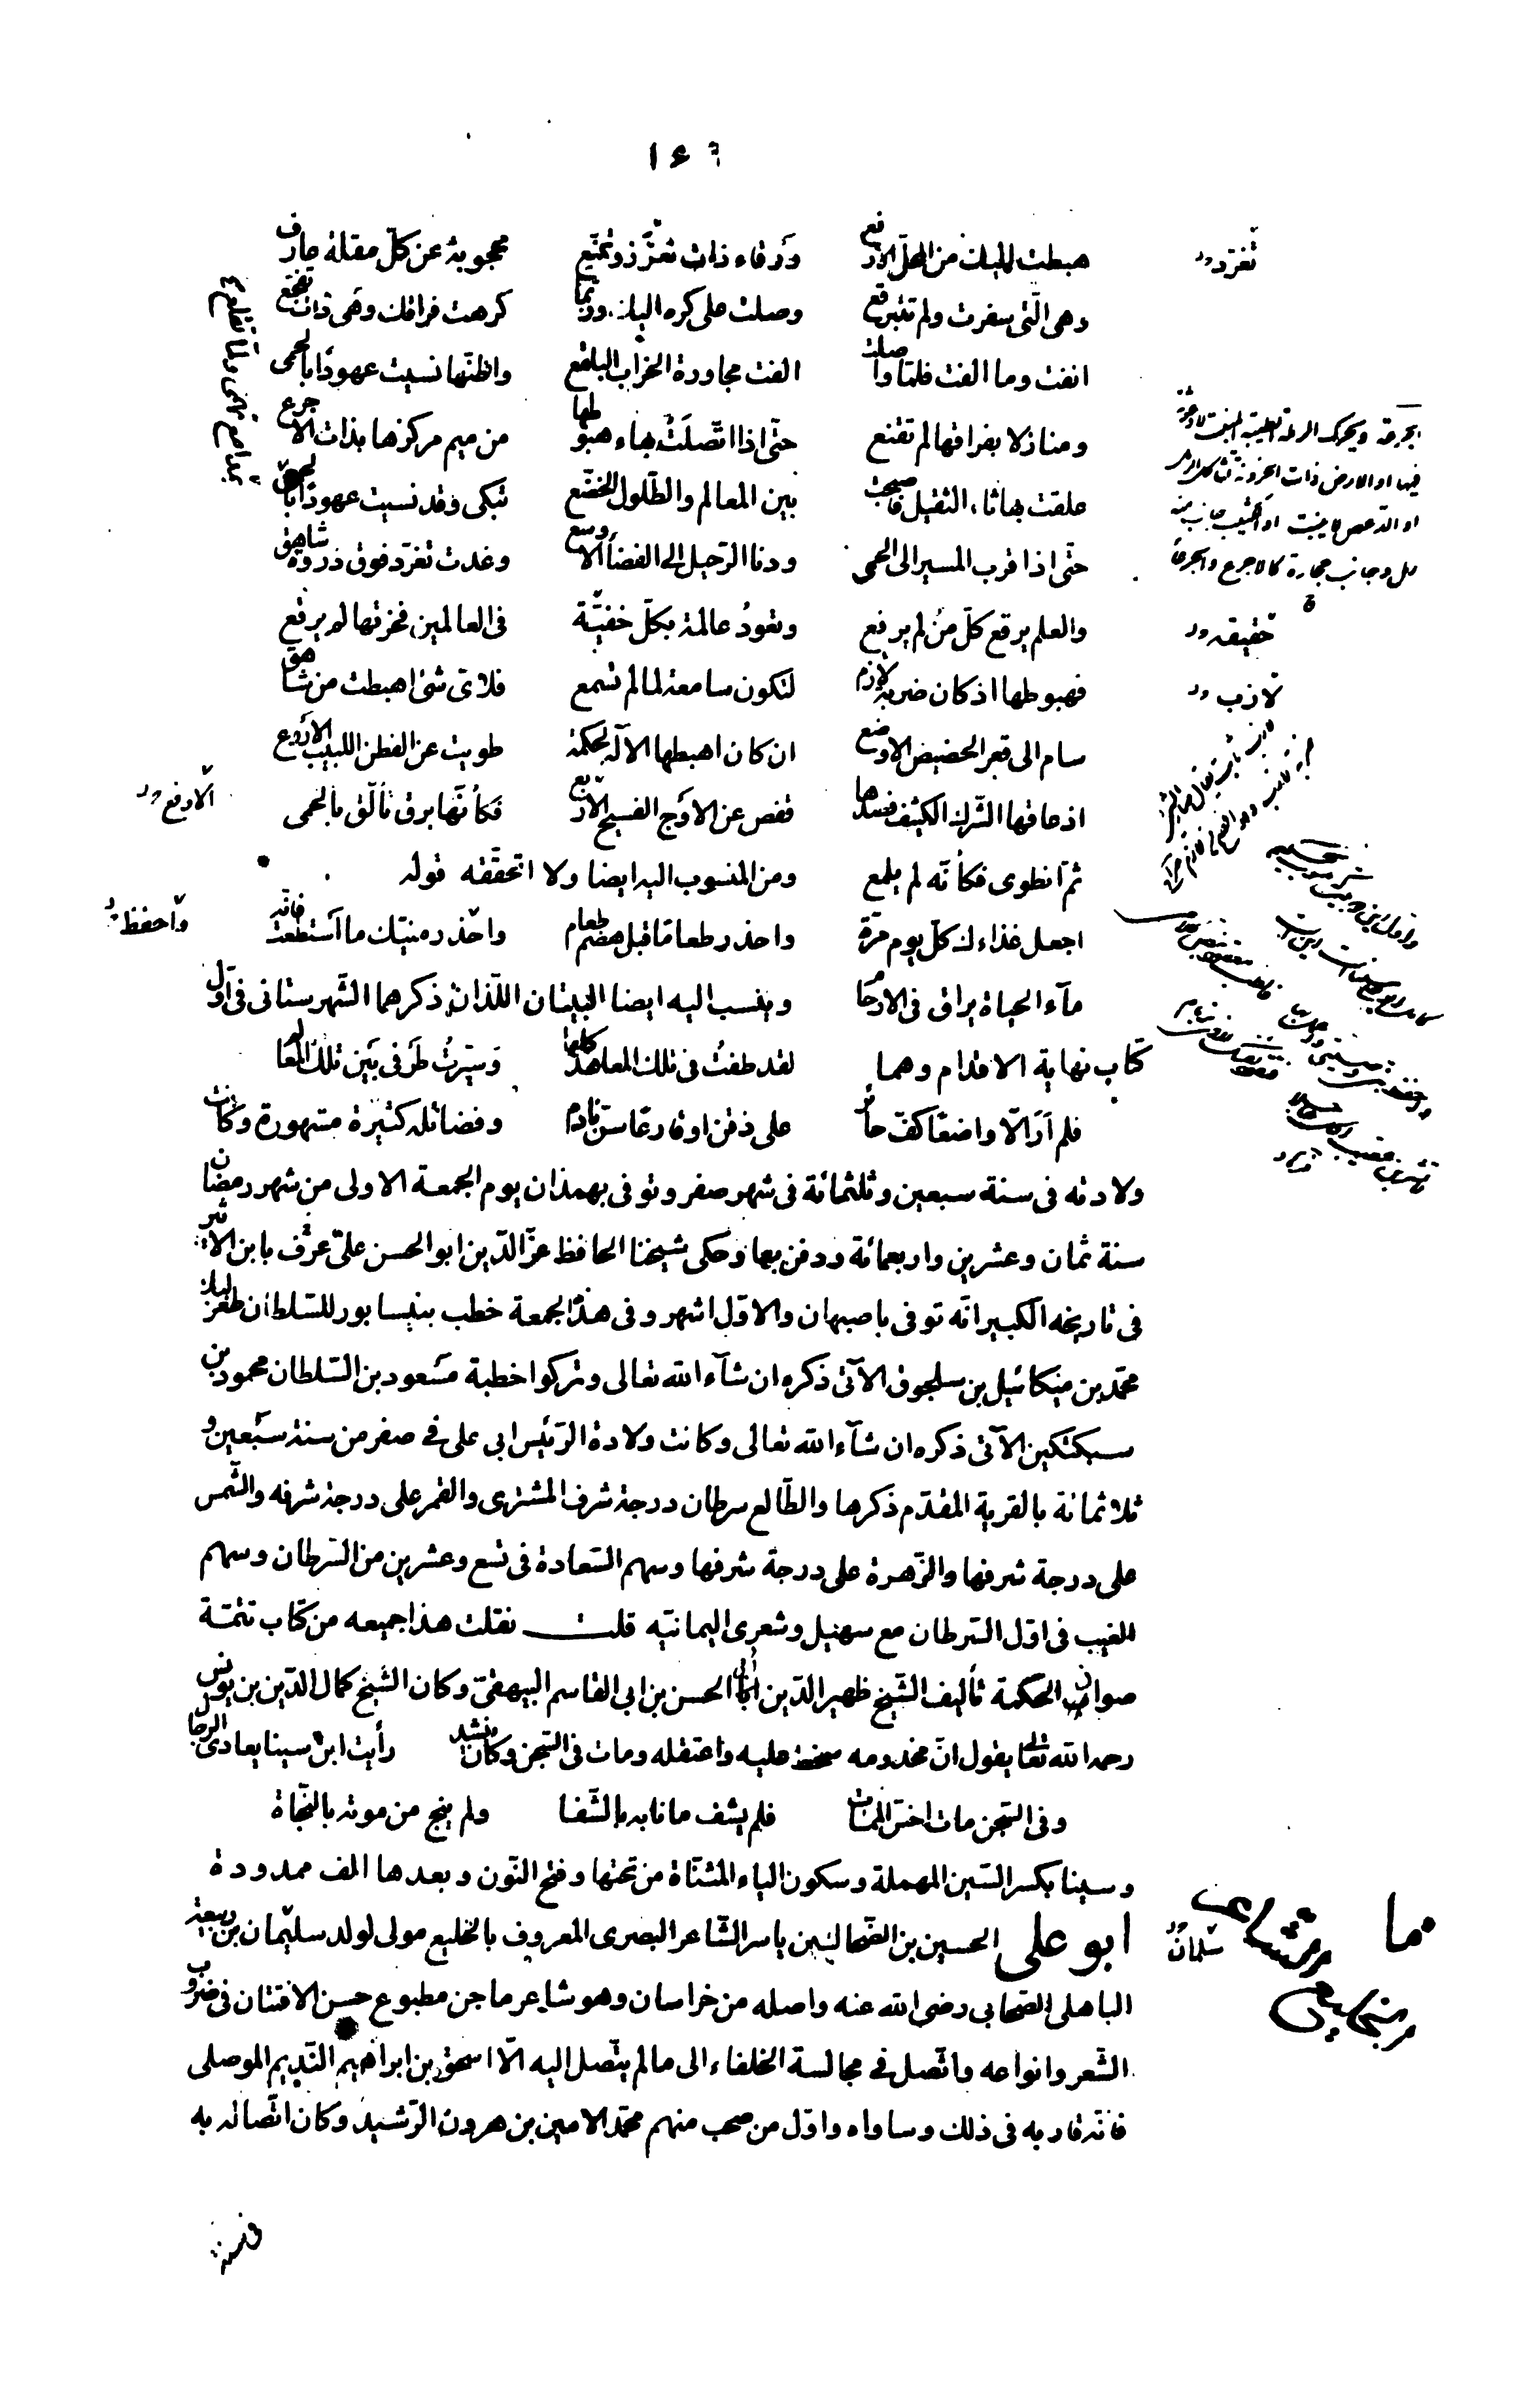 ١٤٦
هبطت اليك من المحل الارفع ورقاء ذات تعزّز وتمنّع محجوبة عن كلّ مقلة عارف
وهى الّتى سفرت ولم تتبرقع وصلت على كره اليك وربّما كرهت فراقك وهى ذات تفجّع
انفت وما الفت فلمّا واصلت الفت مجاورة الخراب البلقع واظنّها نسيت عهودًا بالحمى
ومنازلا بفراقها لم تقنع حتّى اذا اتّصلت بهاء هبوطها من ميم مركزها بذات الاجرع
علقت بها ثاء الثقيل فاصبحت بين المعالم والطّلول الخضّع تبكى وقد نسيت عهودًا بالحمى
حتّى اذا قرب المسير الى الحمى ودنا الرّحيل الى الفضاء الاوسع وغدت تغرّد فوق ذروة شاهق
والعلم يرفع كلّ من لم يرفع وتعود عالمة بكلّ خفيّة فى العالمين فخرقها لم يرقع
فهبوطها اذ كان ضربة لازم لتكون سامعة لما لم تسمع فلاىّ شئ اهبطت من شاهق
سام الى قعر الحضيض الاوضع ان كان اهبطها الاله لحكمة طويت عن الفطن اللبيب الاروع
اذ عاقها الشّرك الكثيف فصدّها قفص عن الاوج الفسيح الاربع فكأنّها برق تألّق بالحمى
ثمّ انطوى فكأنّه لم يلمع ومن المنسوب اليه ايضا ولا اتحققه قوله
اجعل غذاءك كلّ يوم مرّة واحذر طعامًا قبل هضم طعام واحذر منيّك ما استطعت فانّه
مآء الحياة يراق فى الارحام وينسب اليه ايضا البيتان اللذان ذكرهما الشّهرستانى فى اوّل
كتاب نهاية الاقدام وهما لقد طفت فى تلك المعاهد كلها وسيّرت طرفى بين تلك المعالم
فلم ار الّا واضعًا كفّ حائر على ذقن او قارعًا سنّ نادم وفضائله كثيرة مشهورة وكانت
ولادته فى سنة سبعين وثلثمائة فى شهر صفر وتوفى بهمذان يوم الجمعة الاولى من شهر رمضان
سنة ثمان وعشرين واربعمائة ودفن بها وحكى شيخنا الحافظ عزّ الدّين ابو الحسن علىّ عرف بابن الاثير
فى تاريخه الكبير انّه توفى باصبهان والاوّل اشهر وفى هذه الجمعة خطب بنيسابور للسّلطان طغرلبك
محمّد بن ميكائيل بن سلجوق الآتى ذكره ان شآء الله تعالى وتركوا خطبة مسعود بن السّلطان محمود بن
سبكتكين الآتى ذكره ان شآء الله تعالى وكانت ولادة الرّئيس ابى على فى صفر من سنة سبعين و
ثلاثمائة بالقرية المقدّم ذكرها والطّالع سرطان درجة شرف المشترى والقمر على درجة شرفه والشّمس
على درجة شرفها والزّهرة على درجة شرفها وسهم السّعادة فى تسع وعشرين من السّرطان وسهم
الغيب فى اوّل السّرطان مع سهيل وشعرى اليمانيّه قلت نقلت هذا جميعه من كتاب تتمّة
صوان الحكمة تأليف الشّيخ ظهير الدّين ابى الحسن بن ابى القاسم البيهقىّ وكان الشّيخ كمال الدّين بن يونس
رحمه الله تعالى يقول انّ مخدومه سخط عليه واعتقله ومات فى السّجن وكان ينشد رأيت ابن سينا يعادى الرجال
وفى السّجن مات اخسّ الممات فلم يشف ما نابه بالشّفا ولم ينج من موته بالنّجاة
وسينا بكسر السّين المهملة وسكون الياء المثنّاة من تحتها وفتح النّون وبعدها الف ممدودة
ابو على الحسين بن الضّحاك بن ياسر الشّاعر البصرى المعروف بالخليع مولى لولد سليمان بن ربيعة
الباهلى الصّحابى رضى الله عنه واصله من خراسان وهو شاعر ماجن مطبوع حسن الافتنان فى ضروب
الشّعر وانواعه واتّصل فى مجالسة الخلفاء الى ما لم يتّصل اليه الّا اسحق بن ابراهيم النّديم الموصلى
فانّه قاربه فى ذلك وساواه واوّل من صحب منهم محمّد الامين بن هرون الرّشيد وكان اتّصاله به
تغرّد
حقيقه
لازب
الارفع
واحفظ
سلمان